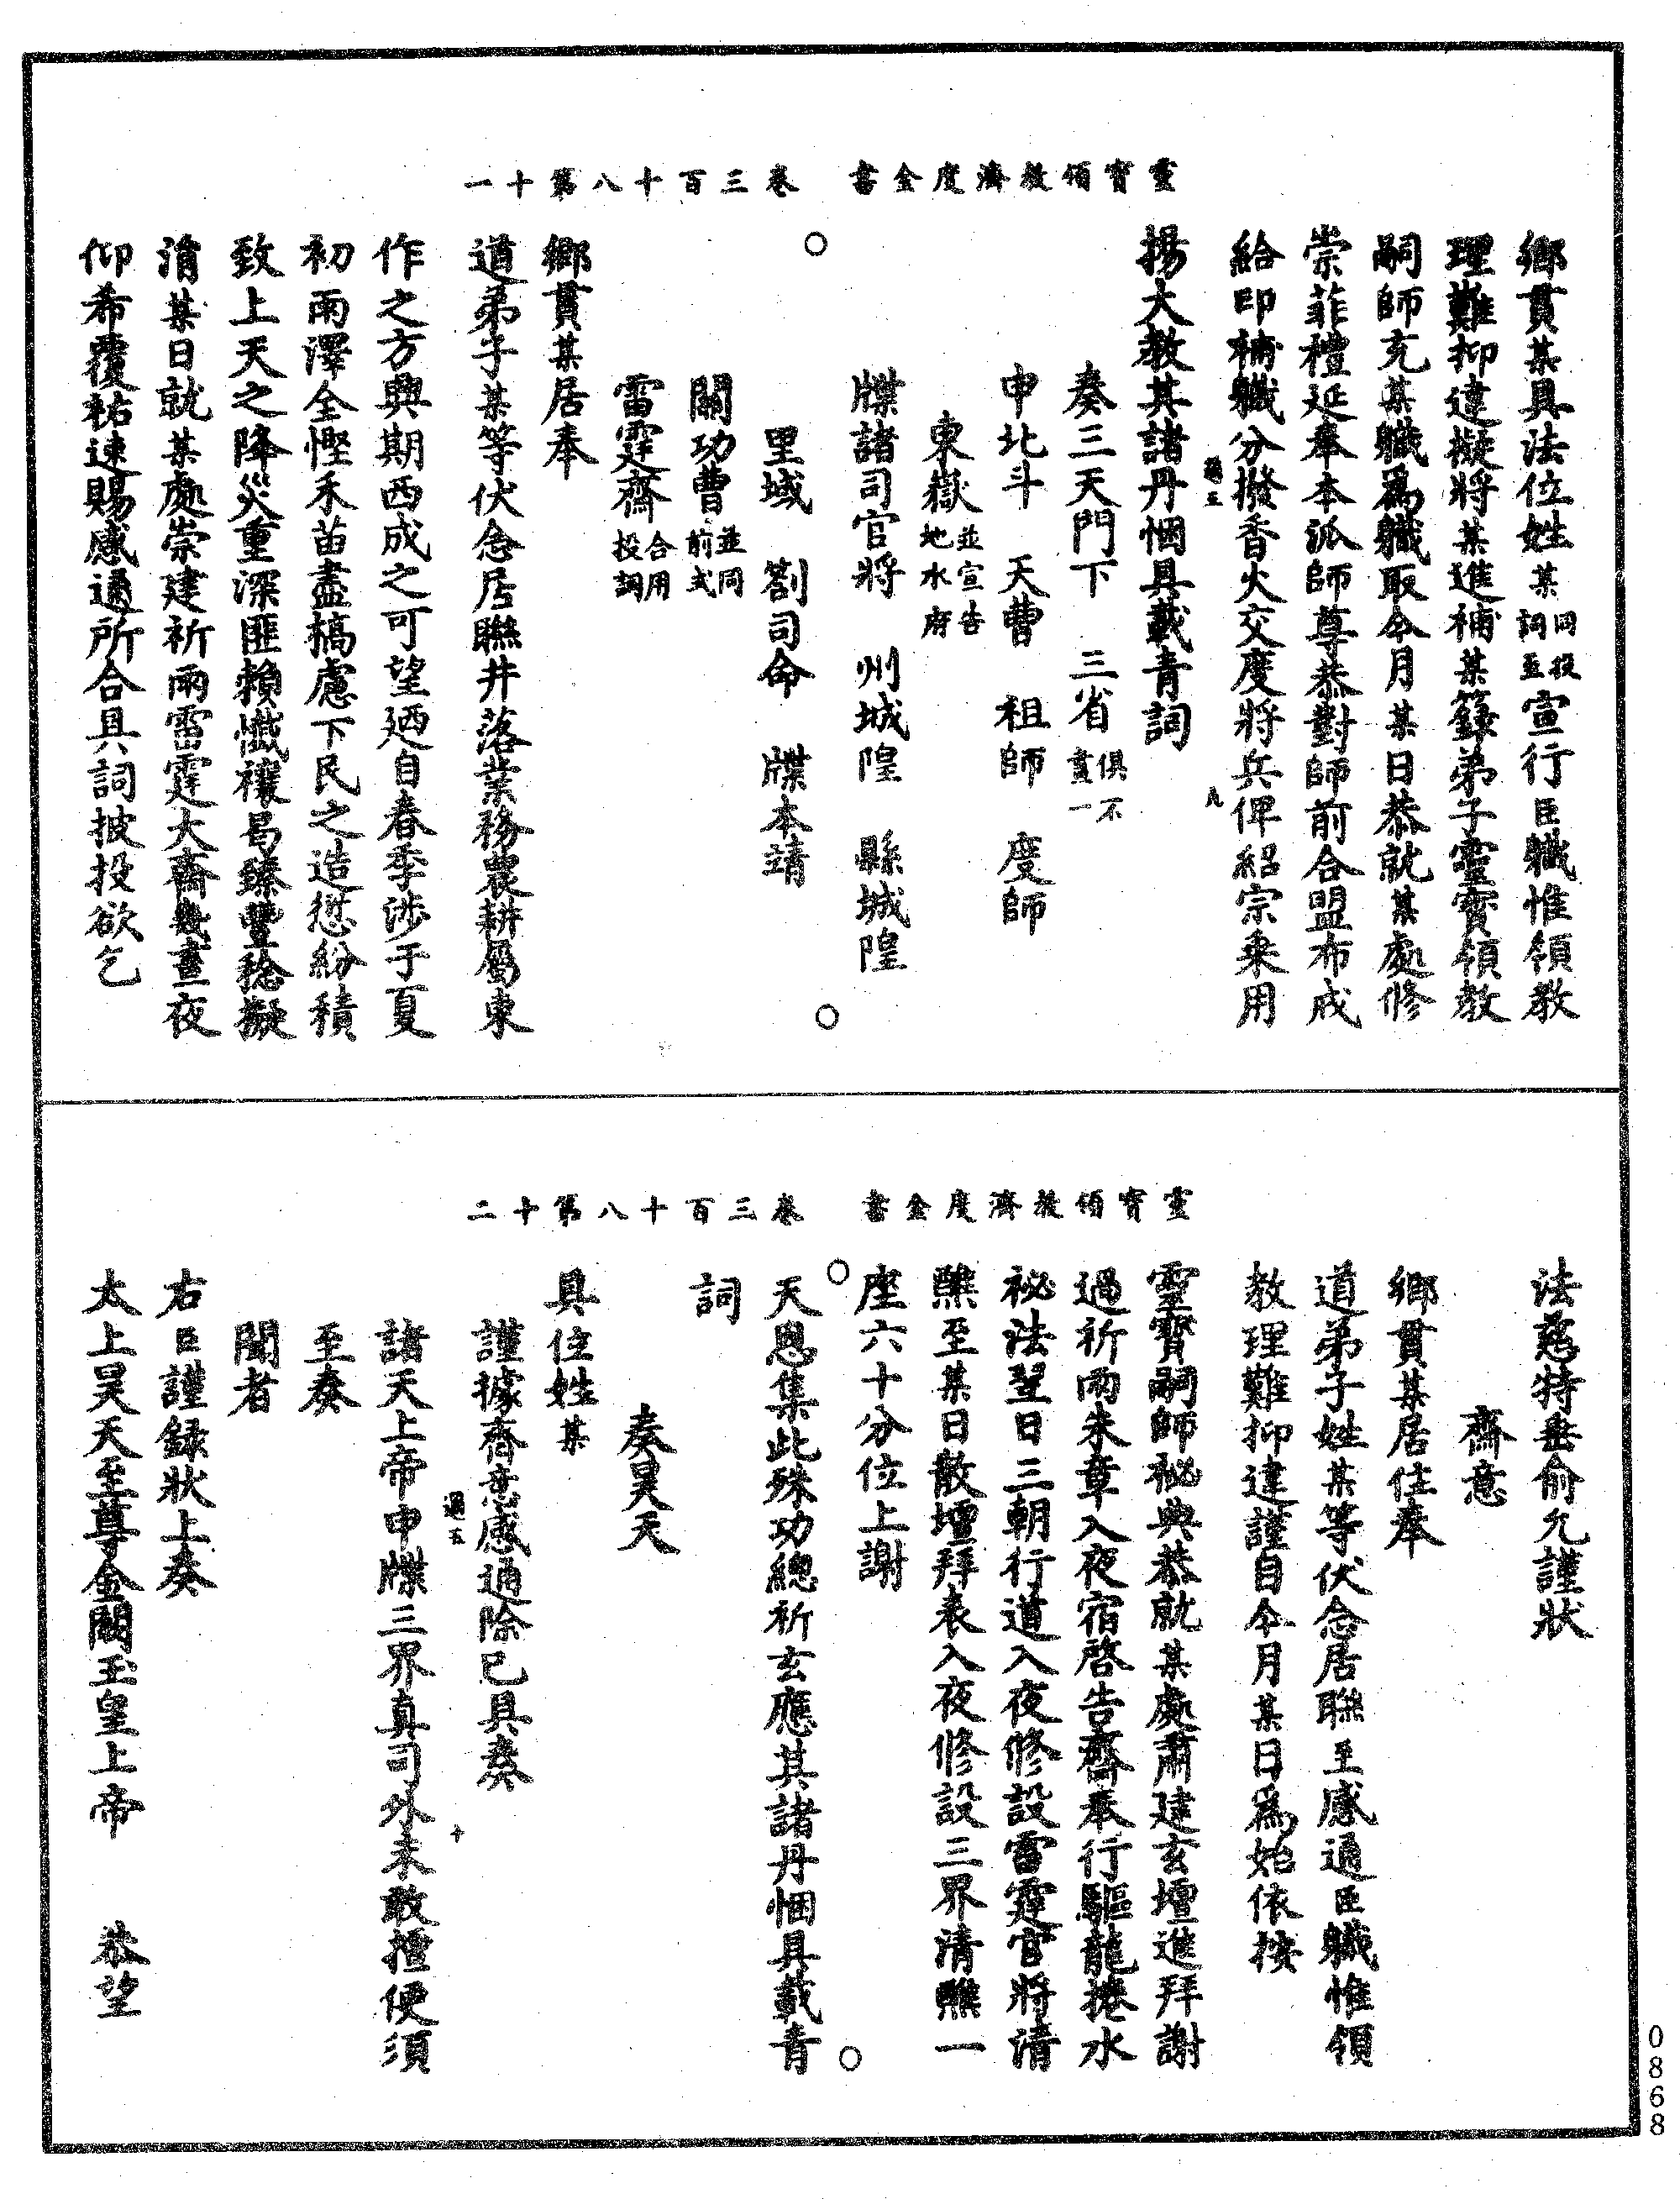 靈寶領教濟度金書　卷三百十八第十一
鄉貫某具法位姓某同投詞至宣行臣職惟領教
理難抑違擬將某進補某籙弟子靈寶領教
嗣師充某職爲職取今月某日恭就某處修
崇菲禮延奉本派師尊恭對師前合盟布戒
給印補職分撥香火交度將兵俾紹宗乘用
揚大教其諸丹悃具載青詞
奏三天門下　三省俱不畫一
申北斗　天曹　祖師　度師
東嶽並宣告地水府
牒諸司官將　州城隍　縣城隍
里域　劄司命　牒本靖
關功曹並同前式
雷霆齋合用投詞
鄉貫某居奉
道弟子某等伏念居聯井落業務農耕屬東
作之方興期西成之可望廼自春季涉于夏
初雨澤全慳禾苗盡槁慮下民之造愆紛積
致上天之降災重深匪賴懺禳曷臻豐稔擬
涓某日就某處崇建祈雨雷霆大齋幾晝夜
仰希覆祐速賜感通所合具詞披投欲乞
靈寶領教濟度金書　卷三百十八第十二
法慈特垂俞允謹狀
齋意
鄉貫某居住奉
道弟子姓某等伏念居聯至感通臣職惟領
教理難抑違謹自今月某日爲始依按
靈寶嗣師祕典恭就某處肅建玄壇進拜謝
過祈雨朱章入夜宿啓告齋奉行驅龍捲水
祕法翌日三朝行道入夜修設雷霆官將清
醮至某日散壇拜表入夜修設三界清醮一
座六十分位上謝
天恩集此殊功總祈玄應其諸丹悃具載青
詞
奏昊天
具位姓某
謹據齋意感通除已具奏
諸天上帝申牒三界真司外未敢擅便須
至奏
聞者
右臣謹錄狀上奏
太上昊天至尊金闕玉皇上帝　恭望
0868